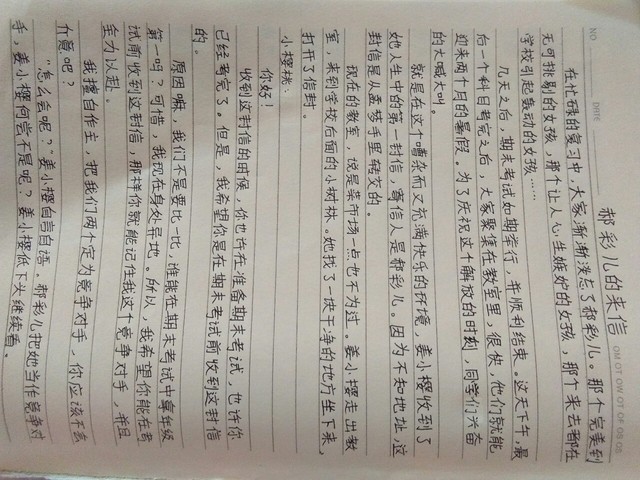 NO.
DATE
郝彩儿的来信
在忙碌的复习中，大家渐渐淡忘了郝彩儿。那个完美到
无可挑剔的女孩，那个让人心生嫉妒的女孩，那个来去都在
学校引起轰动的女孩……
几天之后，期末考试如期举行，并顺利结束。这天下午，最
后一个科目考完之后，大家聚集在教室里，很快，他们就能
迎来两个月的暑假。为了庆祝这个解放的时刻，同学们兴奋
的大喊大叫。
就是在这个嘈杂而又充满快乐的环境，姜小樱收到了
她人生中的第一封信，寄信人是郝彩儿。因为不知地址，这
封信是从孟梦手里转交的。
现在的教室，说是菜市场一点也不为过。姜小樱走出教
室，来到学校右面的小树林。她找了一块干净的地方坐下来，
打开了信封。
小樱妹：
你好！
收到这封信的时候，你也许在准备期末考试，也许你
已经考完了。但是，我希望你是在期末考试前收到这封信
的。
原因嘛，我们不是要比一比，谁能在期末考试中拿年级
第一吗？可惜，我现在身处异地。所以，我希望你能在考
试前收到这封信，那样你就能记住我这个竞争对手，并且
全力以赴。
我擅自作主，把我们两个定为竞争对手，你应该不会
介意吧？
“怎么会呢？”姜小樱自言自语。郝彩儿把她当作竞争对
手，姜小樱何尝不是呢？姜小樱低下头继续看。